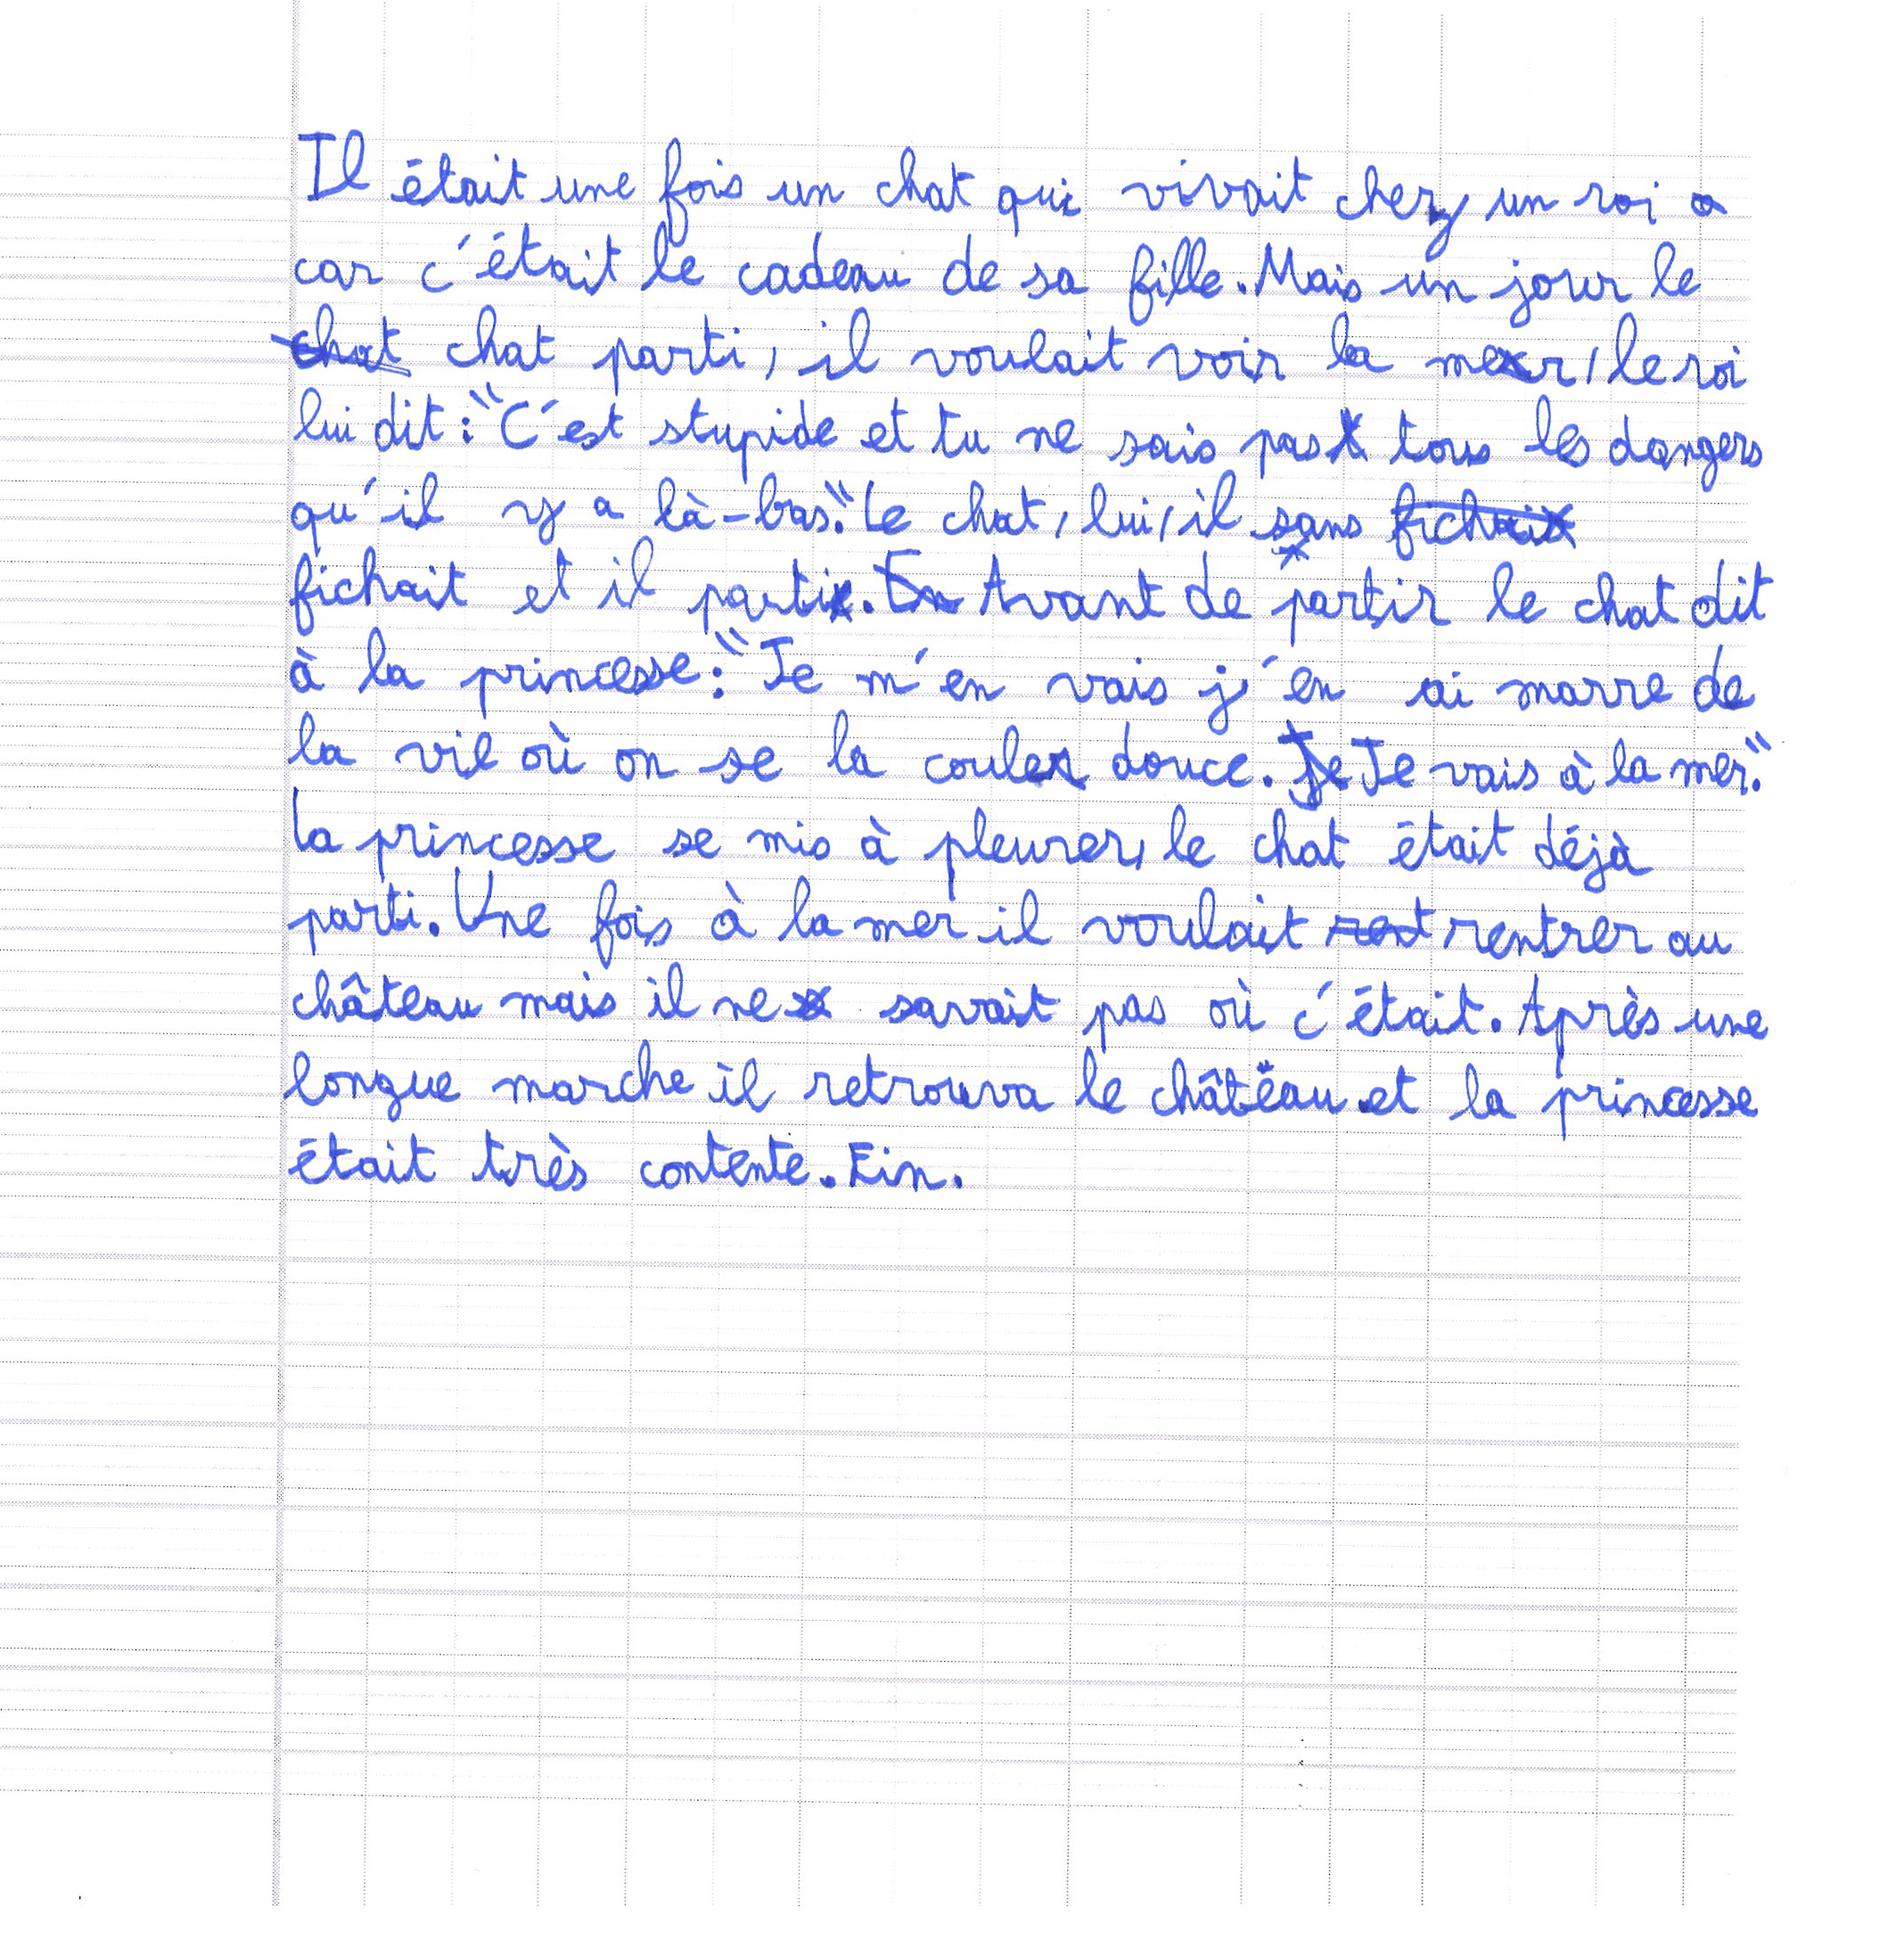 Il était une fois un chat qui vivait chez un roi
car c'était le cadeau de sa fille. Mais un jour le
chat chat parti, il voulait voir la mer, le roi
lui dit : "C'est stupide et tu ne sais pas tous les dangers
qu'il y a là-bas." Le chat, lui, il sans fichait
fichait et il parti. En Avant de partir le chat dit
à la princesse : "Je m'en vais j'en ai marre de
la vil où on se la couler douce. Je Je vais à la mer."
La princesse se mis à pleurer, le chat était déjà
parti. Une fois à la mer il voulait rent rentrer au
château mais il ne savait pas où c'était. Après une
longue marche il retrouva le château et la princesse
était très contente. Fin.